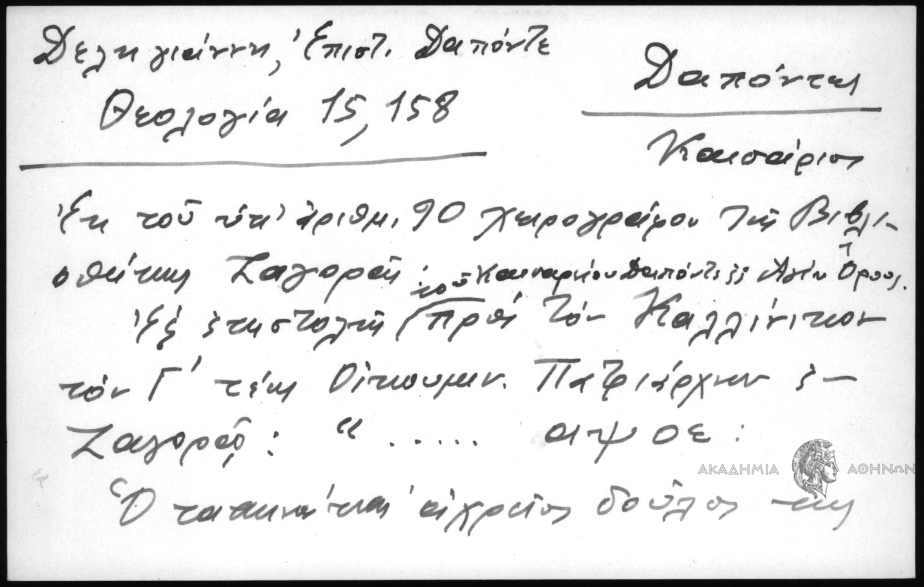 Δεληγιάννη, Ἐπιστ. Δαπόντε
Δαπόντες
Θεολογία 15, 158
Καισάριος
Ἐκ τοῦ ὑπ' ἀριθμ. 90 χειρογράφου τῆς Βιβλι-
οθήκης Ζαγορᾶς
τοῦ Καισαρίου Δαπόντε ἐξ Ἁγίου Ὄρους.
Ἐξ ἐπιστολῆς πρὸς τὸν Καλλίνικον
τὸν Γ' τέως Οἰκουμεν. Πατριάρχην ἐ-
Ζαγορᾶς: "..... αιψοε:
ΑΚΑΔΗΜΙΑ ΑΘΗΝΩΝ
Ὁ ταπεινὸς καὶ ἀχρεῖος δοῦλος της